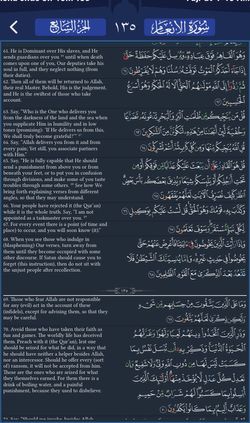 سُورَةُ الأَنْعَامِ
١٣٥
الجُزْءُ السَّابِعُ
61. He is Dominant over His slaves, and He
sends guardians over you,⁠ until when death
comes upon one of you, Our deputies take his
soul in full, and they neglect nothing (from
their duties).
62. Then all of them will be returned to Allah,
their real Master. Behold, His is the judgement,
and He is the swiftest of those who take
account.
63. Say, "Who is the One who delivers you
from the darkness of the land and the sea when
you supplicate Him in humility and in low
tones (promising): 'If He delivers us from this,
We shall truly become grateful'?"
64. Say, "Allah delivers you from it and from
every pain; Yet still, you associate partners
with Him."
65. Say, "He is fully capable that He should
send a punishment from above you or from
beneath your feet, or to put you in confusion
through divisions, and make some of you taste
troubles through some others." See how We
bring forth explanations verses from different
angles, so that they may understand.
66. Your people have rejected it (the Qur'an)
while it is the whole truth. Say, "I am not
appointed as a taskmaster over you."
67. For every event there is a point (of time and
place) to occur; and you will soon know (it)."
68. When you see those who indulge in
(blaspheming) Our verses, turn away from
them until they enter into some other
discourse. If Satan should cause you to
forget (this instruction), then do not sit with
the unjust people after recollection.
69. Those who fear Allah are not responsible
for any (evil) act in the account of these
(infidels), except for advising them, so that they
may be careful.
70. Avoid those who have taken their faith as
fun and games. The worldly life has deceived
them. Preach with it (the Qur'an), lest one
should be seized for what he did, in a way that
he should have neither a helper besides Allah,
nor an intercessor. Should he offer every (sort
of) ransom, it will not be accepted from him.
These are the ones who are seized for what
they themselves earned. For them there is a
drink of boiling water, and a painful
punishment, because they used to disbelieve.
وَهُوَ ٱلْقَاهِرُ فَوْقَ عِبَادِهِۦ وَيُرْسِلُ عَلَيْكُمْ حَفَظَةً حَتَّىٰٓ
إِذَا جَآءَ أَحَدَكُمُ ٱلْمَوْتُ تَوَفَّتْهُ رُسُلُنَا وَهُمْ لَا يُفَرِّطُونَ ٦١
ثُمَّ رُدُّوٓا۟ إِلَى ٱللَّهِ مَوْلَىٰهُمُ ٱلْحَقِّ أَلَا لَهُ ٱلْحُكْمُ وَهُوَ أَسْرَعُ
ٱلْحَٰسِبِينَ ٦٢ قُلْ مَن يُنَجِّيكُم مِّن ظُلُمَٰتِ ٱلْبَرِّ وَٱلْبَحْرِ تَدْعُونَهُۥ تَضَرُّعًا
وَخُفْيَةً لَّئِنْ أَنجَىٰنَا مِنْ هَٰذِهِۦ لَنَكُونَنَّ مِنَ ٱلشَّٰكِرِينَ ٦٣
قُلِ ٱللَّهُ يُنَجِّيكُم مِّنْهَا وَمِن كُلِّ كَرْبٍ ثُمَّ أَنتُمْ تُشْرِكُونَ ٦٤
قُلْ هُوَ ٱلْقَادِرُ عَلَىٰٓ أَن يَبْعَثَ عَلَيْكُمْ عَذَابًا مِّن فَوْقِكُمْ أَوْ مِن
تَحْتِ أَرْجُلِكُمْ أَوْ يَلْبِسَكُمْ شِيَعًا وَيُذِيقَ بَعْضَكُم بَأْسَ بَعْضٍ
ٱنظُرْ كَيْفَ نُصَرِّفُ ٱلْءَايَٰتِ لَعَلَّهُمْ يَفْقَهُونَ ٦٥ وَكَذَّبَ
بِهِۦ قَوْمُكَ وَهُوَ ٱلْحَقُّ قُل لَّسْتُ عَلَيْكُم بِوَكِيلٍ ٦٦
لِّكُلِّ نَبَإٍ مُّسْتَقَرٌّ وَسَوْفَ تَعْلَمُونَ ٦٧
وَإِذَا رَأَيْتَ ٱلَّذِينَ يَخُوضُونَ فِىٓ ءَايَٰتِنَا فَأَعْرِضْ عَنْهُمْ حَتَّىٰ
يَخُوضُوا۟ فِى حَدِيثٍ غَيْرِهِۦ وَإِمَّا يُنسِيَنَّكَ ٱلشَّيْطَٰنُ فَلَا
تَقْعُدْ بَعْدَ ٱلذِّكْرَىٰ مَعَ ٱلْقَوْمِ ٱلظَّٰلِمِينَ ٦٨
وَمَا عَلَى ٱلَّذِينَ يَتَّقُونَ مِنْ حِسَابِهِم مِّن شَىْءٍ
وَلَٰكِن ذِكْرَىٰ لَعَلَّهُمْ يَتَّقُونَ ٦٩
وَذَرِ ٱلَّذِينَ ٱتَّخَذُوا۟ دِينَهُمْ لَعِبًا وَلَهْوًا وَغَرَّتْهُمُ
ٱلْحَيَوٰةُ ٱلدُّنْيَا وَذَكِّرْ بِهِۦٓ أَن تُبْسَلَ نَفْسٌۢ بِمَا
كَسَبَتْ لَيْسَ لَهَا مِن دُونِ ٱللَّهِ وَلِىٌّ وَلَا شَفِيعٌ وَإِن
تَعْدِلْ كُلَّ عَدْلٍ لَّا يُؤْخَذْ مِنْهَآ أُو۟لَٰٓئِكَ ٱلَّذِينَ
أُبْسِلُوا۟ بِمَا كَسَبُوا۟ لَهُمْ شَرَابٌ مِّنْ حَمِيمٍ
وَعَذَابٌ أَلِيمٌۢ بِمَا كَانُوا۟ يَكْفُرُونَ ٧٠